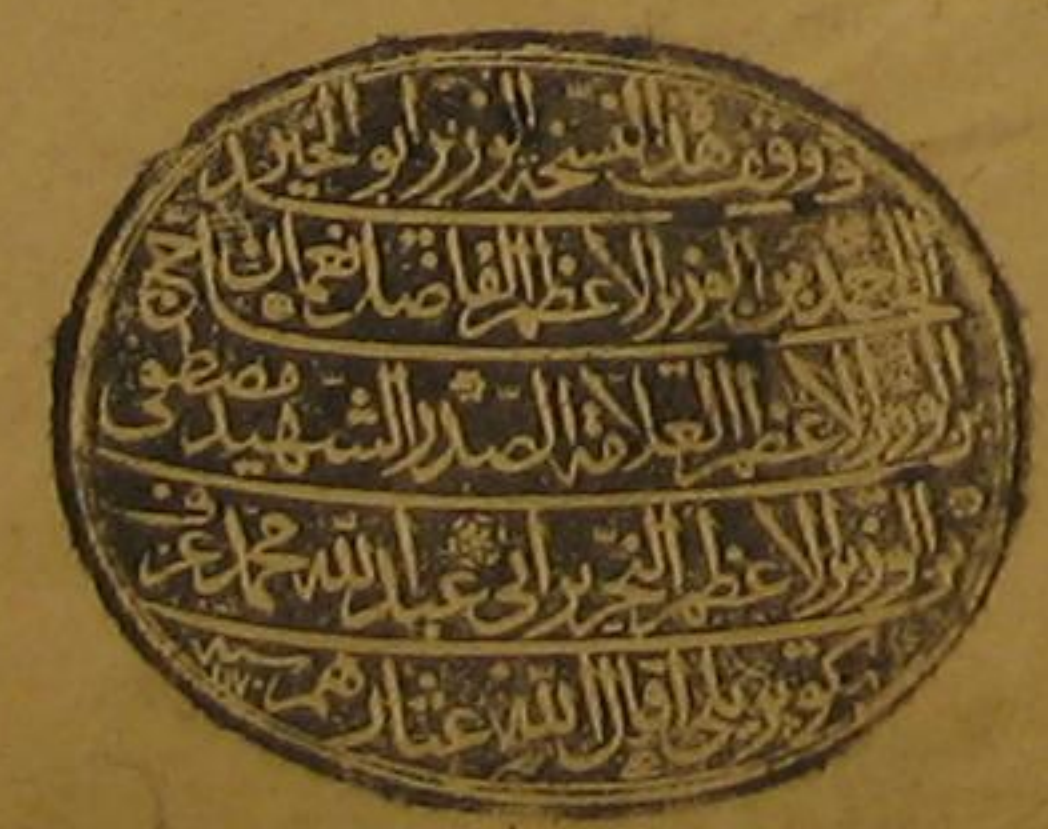 و وقف هذا النسخة الوزير ابو الخير
الحاج احمد بن الوزير الاعظم الفاضل نعمان
بن الوزير الاعظم العلامة الصدر الشهيد مصطفى
بن الوزير الاعظم النحرير ابي عبد الله محمد عرف
كوپريلى اقال الله عثارهم